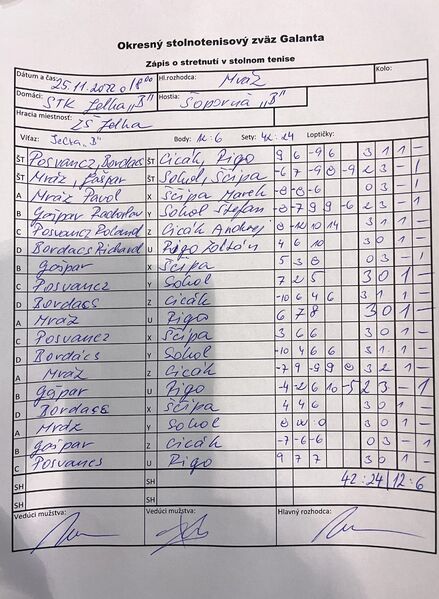 Okresný stolnotenisový zväz Galanta
Zápis o stretnutí v stolnom tenise
Dátum a čas: 25.11.2022 o 18:00 Hl.rozhodca: Mráz Kolo:
Domáci: STK Jelka „B" Hostia: Šoporňa „B"
Hracia miestnosť: ZŠ Jelka
Víťaz: Jelka „B" Body: 12:6 Sety: 42:24 Loptičky:
ŠT Posvancz, Bordács ŠT Cicák, Rigo 9 6 -9 6 3 1 1 -
ŠT Mráz, Gašpar ŠT Sokol, Ščipa -6 7 -9 8 -9 2 3 - 1
A Mráz Pavol X Ščipa Marek -8 -8 -6 0 3 - 1
B Gašpar Radoslav Y Sokol Štefan -8 -7 9 9 -6 2 3 - 1
C Posvancz Roland Z Cicák Andrej -8 12 10 14 3 1 1 -
D Bordacs Richard U Rigo Zoltán 4 6 10 3 0 1 -
B Gašpar X Ščipa 5 3 8 0 3 - 1
C Posvancz Y Sokol 7 2 5 3 0 1 -
D Bordacs Z Cicák -10 6 4 6 3 1 1 -
A Mráz U Rigo 6 7 8 3 0 1 -
C Posvancz X Ščipa 3 6 6 3 0 1 -
D Bordács Y Sokol -10 4 6 6 3 1 1 -
A Mráz Z Cicák -7 9 -9 9 8 3 2 1 -
B Gašpar U Rigo -4 -12 6 10 -5 2 3 - 1
D Bordacs X Ščipa 4 4 6 3 0 1 -
A Mráz Y Sokol 3 0 1 -
B Gašpar Z Cicák -7 -6 -6 0 3 - 1
C Posvancz U Rigo 9 7 7 3 0 1 -
SH SH 42:24 12:6
SH SH
Vedúci mužstva: Vedúci mužstva: Hlavný rozhodca: